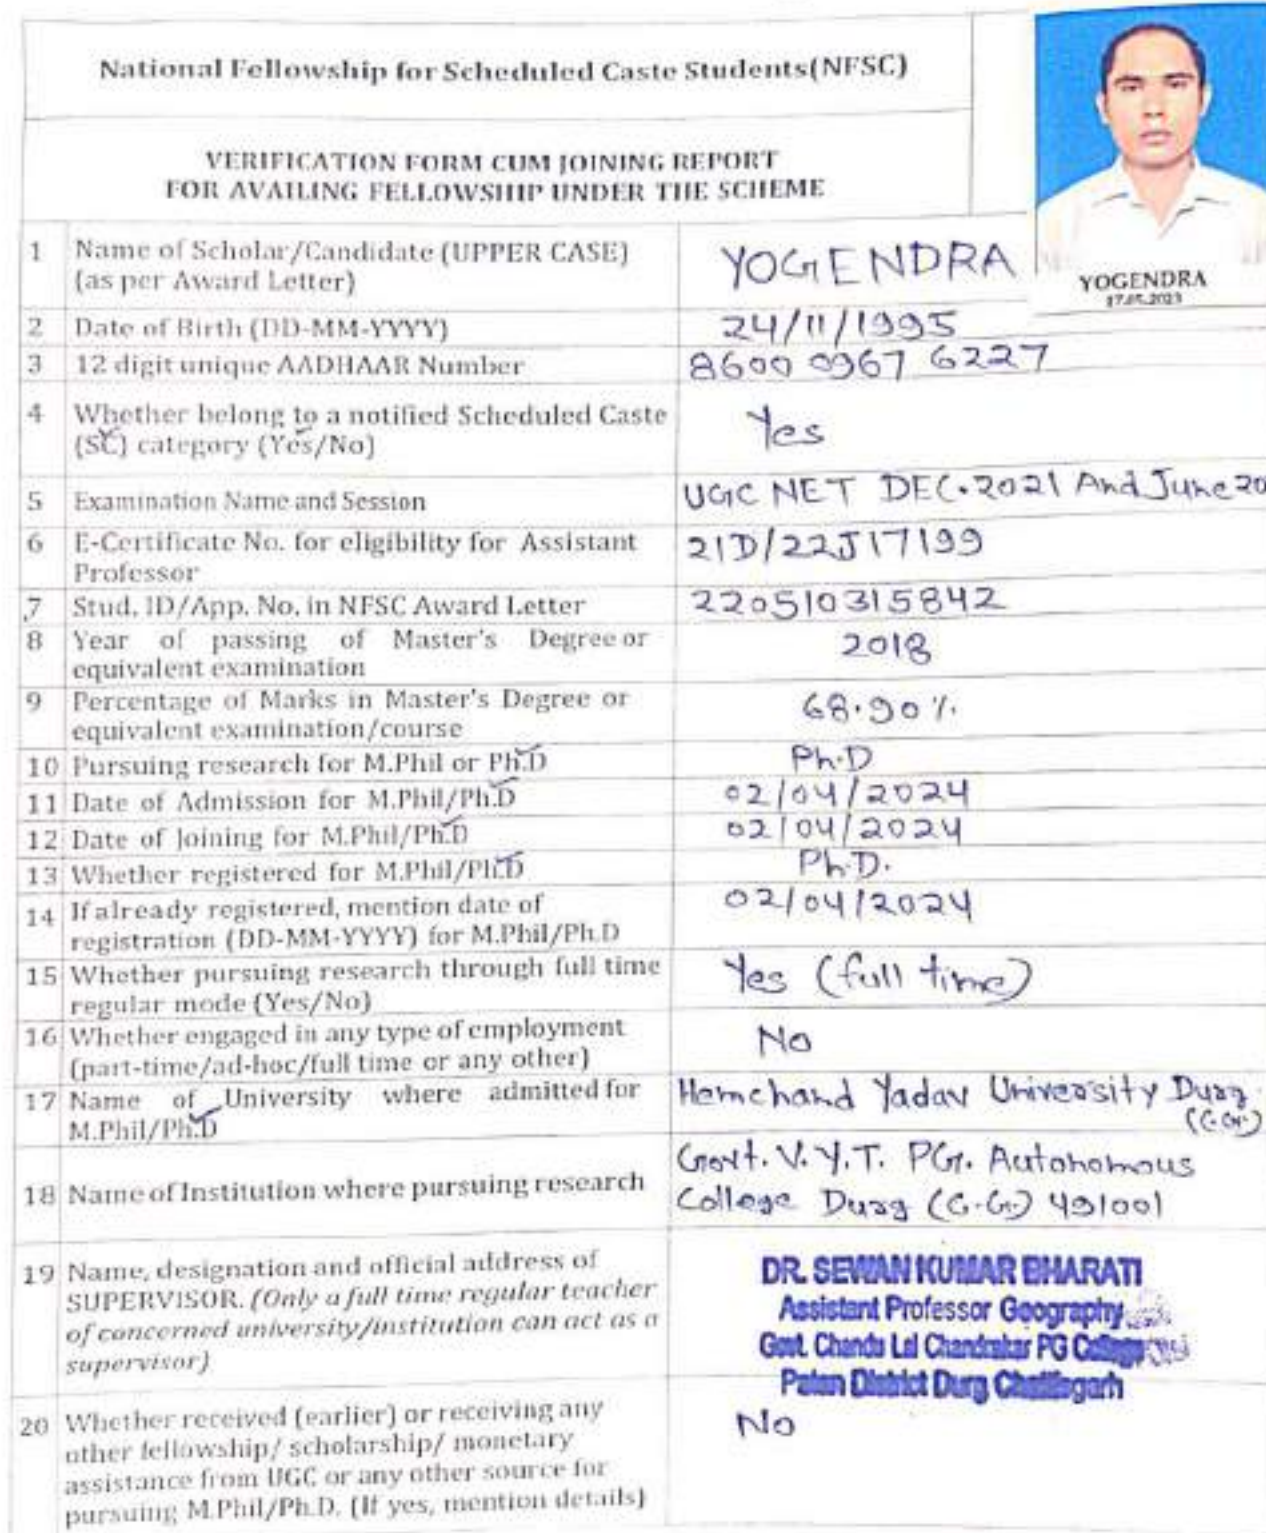 National Fellowship for Scheduled Caste Students(NFSC)
VERIFICATION FORM CUM JOINING REPORT
FOR AVAILING FELLOWSHIP UNDER THE SCHEME
YOGENDRA
17.05.2023
1 Name of Scholar/Candidate (UPPER CASE)
(as per Award Letter)
YOGENDRA
2 Date of Birth (DD-MM-YYYY) 24/11/1995
3 12 digit unique AADHAAR Number 8600 0967 6227
4 Whether belong to a notified Scheduled Caste
(SC) category (Yes/No)
Yes
5 Examination Name and Session UGC NET DEC.2021 And June 20
6 E-Certificate No. for eligibility for Assistant
Professor
21D/22J17199
7 Stud. ID/App. No. in NFSC Award Letter 220510315842
8 Year of passing of Master's Degree or
equivalent examination
2018
9 Percentage of Marks in Master's Degree or
equivalent examination/course
68.90%
10 Pursuing research for M.Phil or Ph.D Ph.D
11 Date of Admission for M.Phil/Ph.D 02/04/2024
12 Date of Joining for M.Phil/Ph.D 02/04/2024
13 Whether registered for M.Phil/Ph.D Ph.D.
14 If already registered, mention date of
registration (DD-MM-YYYY) for M.Phil/Ph.D
02/04/2024
15 Whether pursuing research through full time
regular mode (Yes/No)
Yes (full time)
16 Whether engaged in any type of employment
(part-time/ad-hoc/full time or any other)
No
17 Name of University where admitted for
M.Phil/Ph.D
Hemchand Yadav University Durg
(C.G.)
18 Name of Institution where pursuing research
Govt. V.Y.T. PG. Autonomous
College Durg (C.G.) 491001
19 Name, designation and official address of
SUPERVISOR. (Only a full time regular teacher
of concerned university/institution can act as a
supervisor)
DR. SEWAN KUMAR BHARATI
Assistant Professor Geography
Govt. Chandu Lal Chandrakar PG College
Patan District Durg Chattisgarh
20 Whether received (earlier) or receiving any
other fellowship/ scholarship/ monetary
assistance from UGC or any other source for
pursuing M.Phil/Ph.D. (If yes, mention details)
No